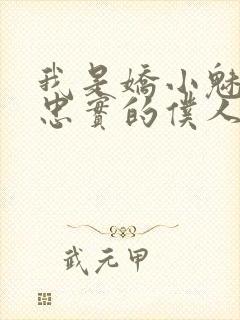 我是嬌小魅
忠實的僕人
武元甲